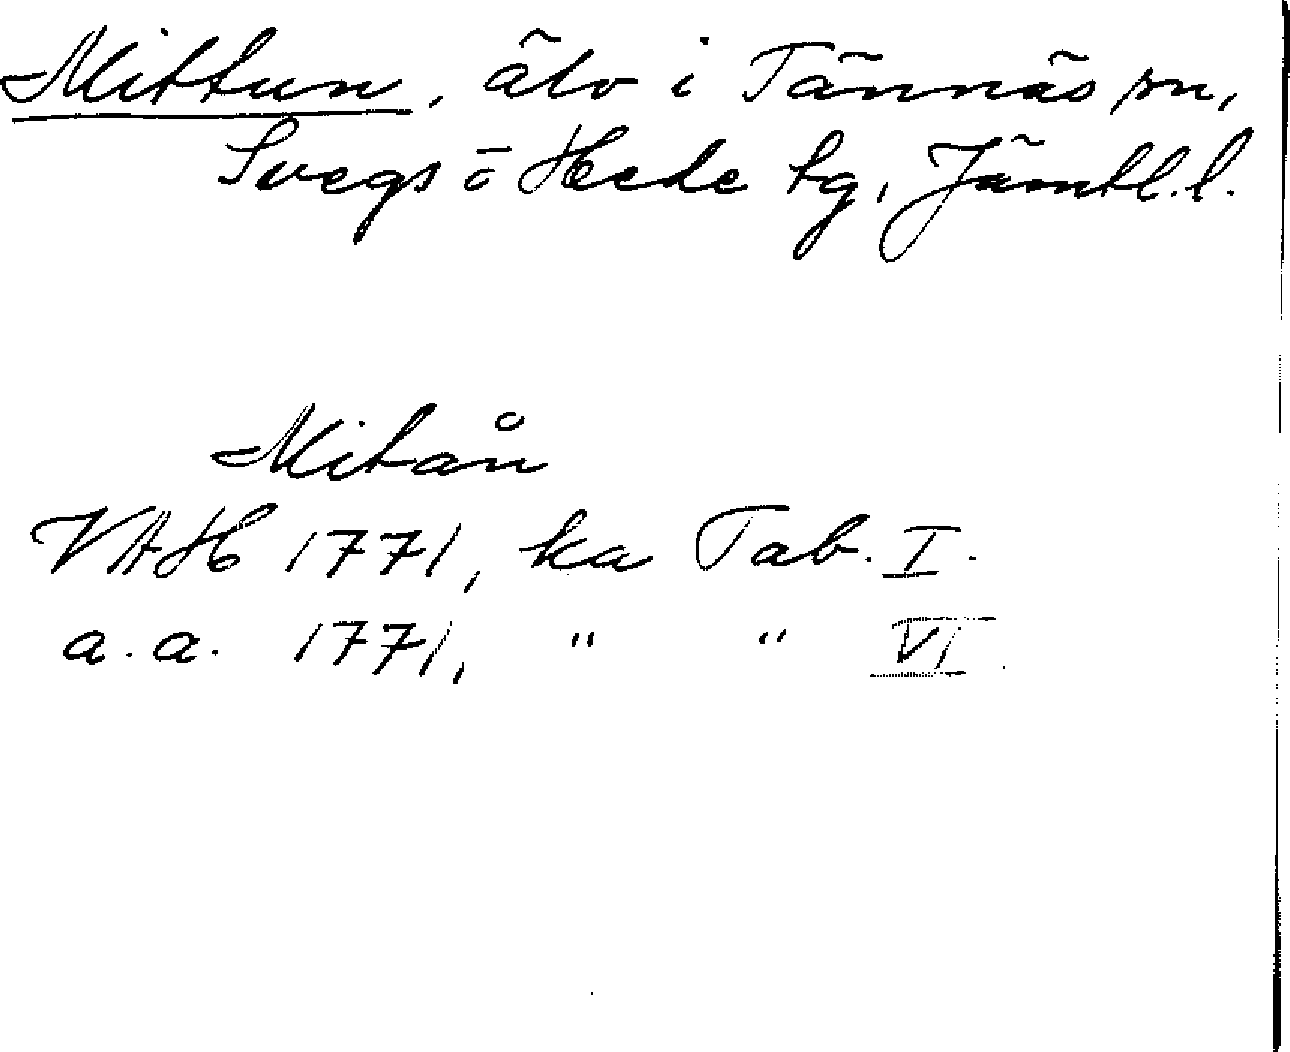 Mittun, älv i Tännäs sn,
Svegs o Hede tg, Jämtl. l.
Mitån
VAH 1771, ka Tab. I.
a. a. 1771, " " VI.